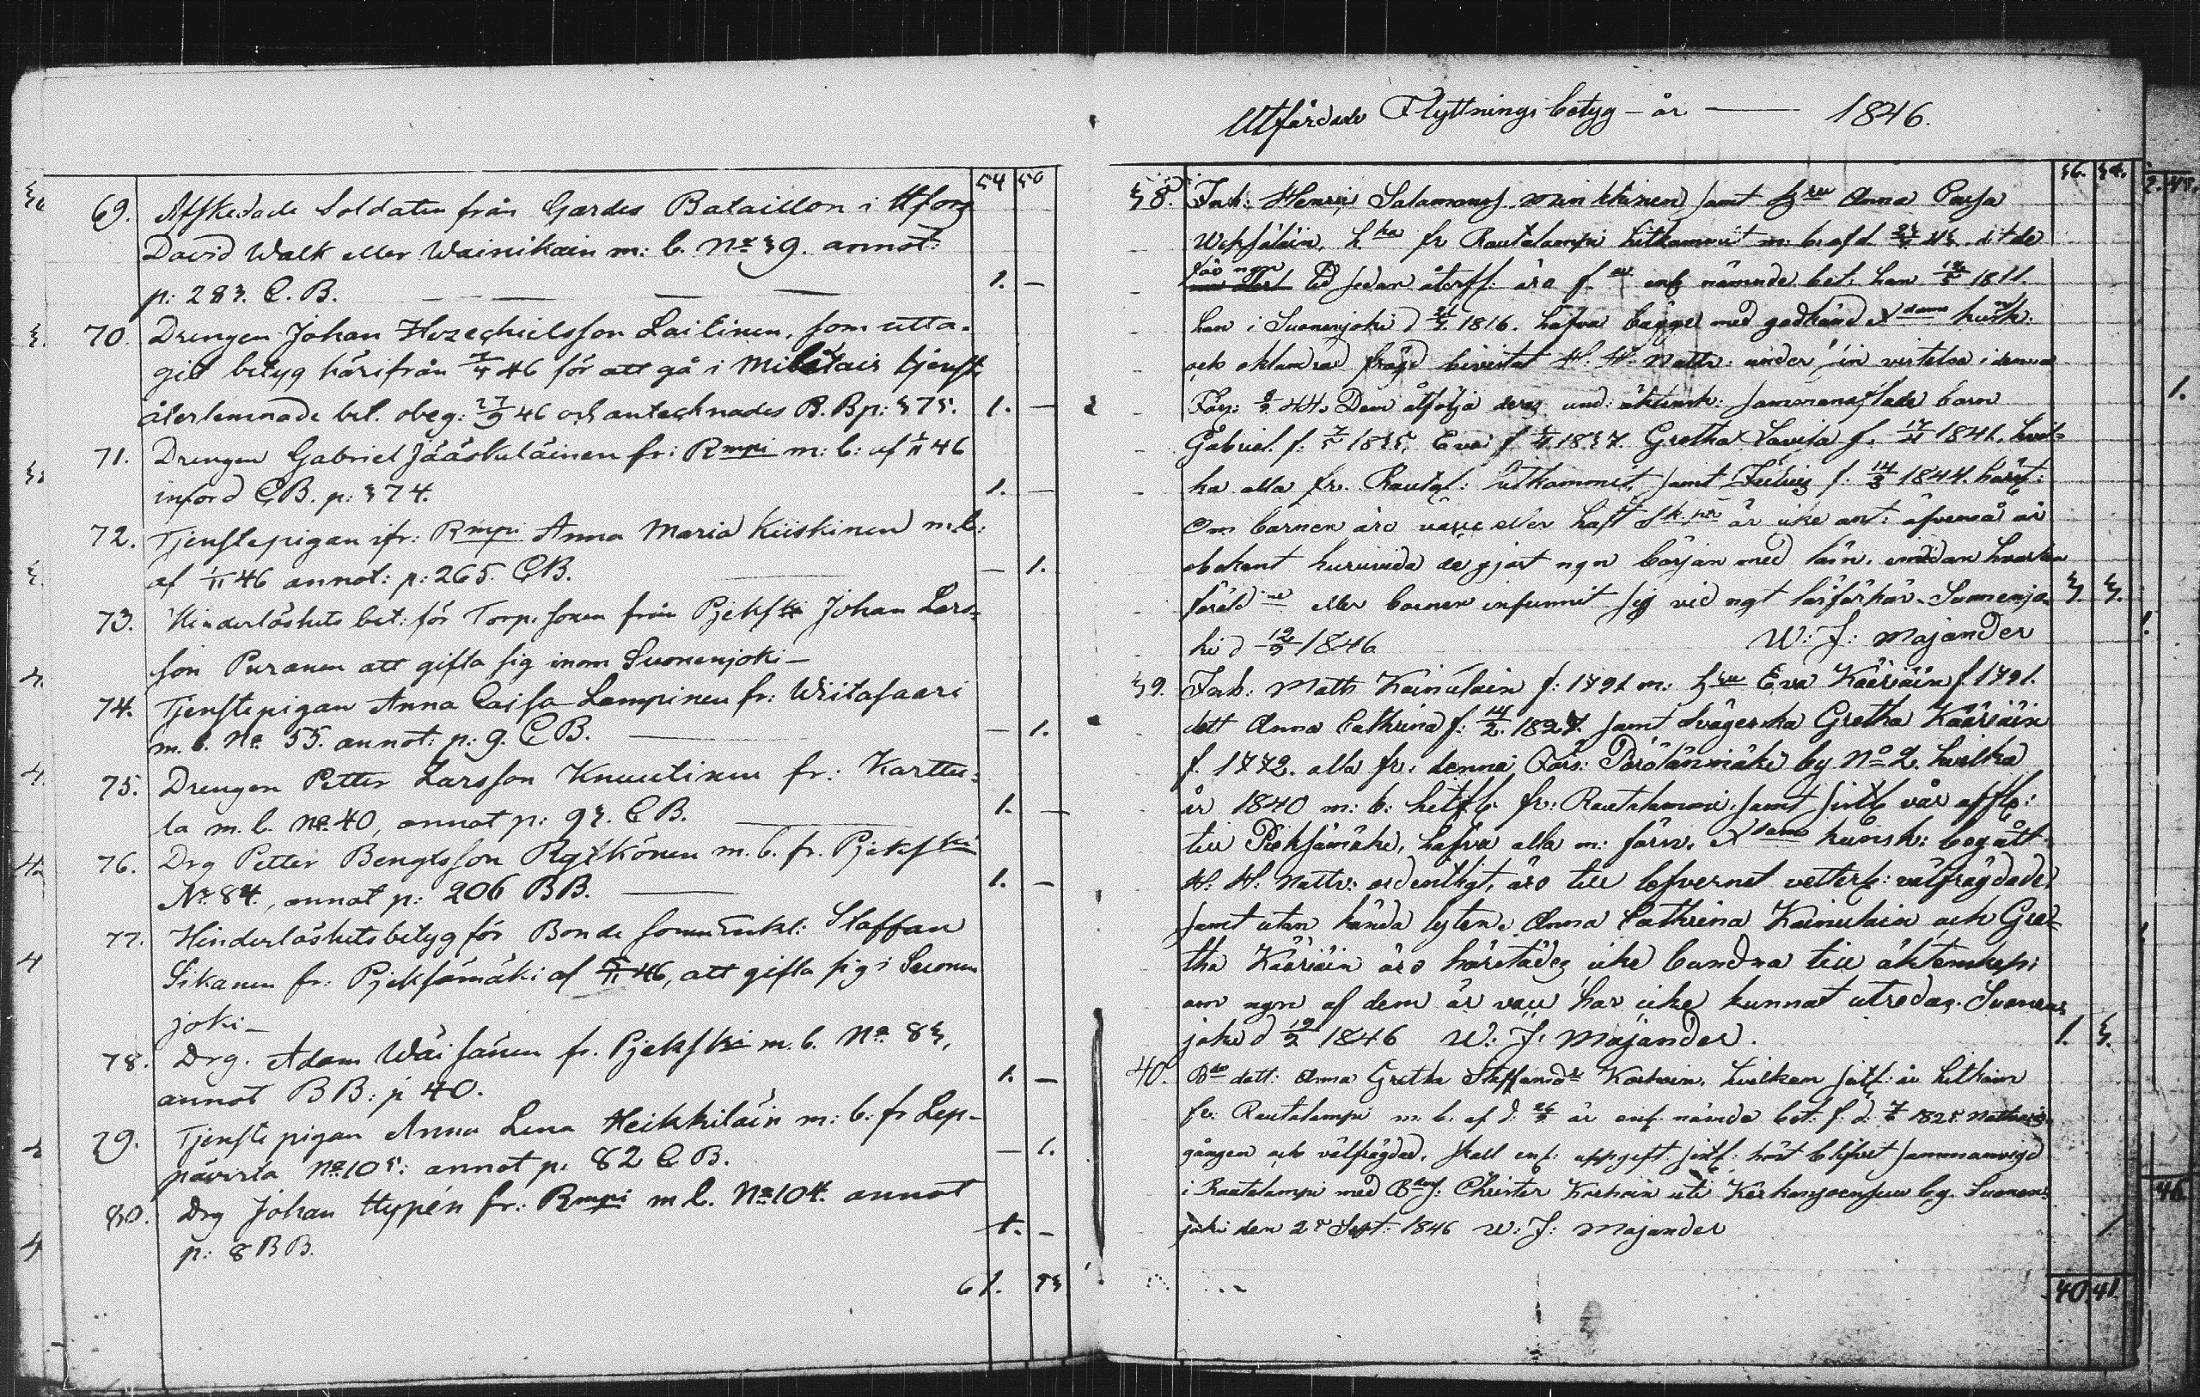 54 50
69. Afskedade Soldaten från Gardes Bataillon i Hfors
David Walk eller Wainikain m: b. No 39. annot:
p: 283. C. B. 1. –
70. Drengen Johan Hezechielsson Laitinen, som utta-
git betyg härifrån 46 för att gå i Militair tjenst
återlemnade bet. obeg: 27/9 46 och antecknades B. B p: 375. 1. –
71. Drengen Gabriel Jääskeläinen fr: Rmpi m: b: af 46
införd C B. p: 374. 1. –
72. Tjenstepigan ifr: Rmpi Anna Maria Kiiskinen m. b:
af 46 annot: p: 265. C B. – 1.
73. Hinderlöshets bet: för Torp. sonen från Pjeks Johan Lars-
son Puranen att gifta sig inom Suonenjoki –
74. Tjenstepigan Anna Caisa Lampinen fr: Wiitasaari
m. b. No 55. annot: p: 9. C B. – 1.
75. Drengen Petter Larsson Knuutinen fr: Karttu-
la m. b. No 40, annot p: 93. C B. 1. –
76. Drg Petter Bengtsson Rytkönen m. b. fr. Pjeks
No 84, annot p: 206 B B. 1. –
77. Hinderlöshetsbetyg för Bonde sonen Enkl: Staffan
Sikanen fr: Pjeksämäki af 46, att gifta sig i Suonen
joki –
78. Drg. Adam Wäisänen fr. Pjeks m. b. No 83,
annot B B: p 40. 1. –
79. Tjenste pigan Anna Lena Heikkiläin m: b: fr Lep-
pävirta No 105: annot p: 82 C B. – 1.
80. Drg Johan Hypén fr: Rmpi m b. No 104. annot
p: 8 B B. 1. –
61. 53
Utfärdade Flyttnings betyg – år — 1846.
38. Inh: Henric Salamonss. Minkkinen samt hru Anna Caisa
fr Rautalampi hitkommit m: b: af d.
sedan återfl: äro f. enl nämnde bet: han 1811.
hon i Suonenjoki d 1816. hafva bägge med godkänd Xdoms kunsk:
och oklandrad frägd bivistat H. H. Nattv: under sin vistelse i denna
Förs: 44. Dem åtfölja deras und: äktensk: sammanaflade barn
Gabriel f: 1835, Eva f 1837. Gretha Lovisa f. 17/ 1841, hvil-
ka alla fr. Rautal: hitkommit, samt f. 14/3 1844. härst:
Om barnen äro vacc eller haft är icke ant: äfvenså är
obekant huruvida de gjort ngn början med läsn. emedan hvarken
föräld eller barnen infunnit sig vid ngt läsförhör. Suonenjo- 3. 3.
ki d 1846 W: J: Majander
39. Inh: Matts Kainulain f: 1791 m: hru Eva Kääriäin f 1791.
dott Anna Cathrina f: 14/2 1827. samt Svägerska Gretha Kääriäin
f. 1772. alla fr: denna Förs: Pörölänmäki by No 2. hvilka
år 1840 m: b: hitfl. fr: Rautalampi, samt sistl vår affl:
till Pieksämäki, hafva alla m: förn. Xdoms kunsk: begått
H: H: Nattv: ordentligt, äro till lefvernet vetterl: välfrägdade
samt utan kända lyten. Anna Cathrina Kainulain och Gre-
tha Kääriäin äro härstädes icke bundna till äktenskap;
om ngn af dem är vacc har icke kunnat utredas. Suonen-
joki d 1846 W: J: Majander. 1. 3.
40. dott: Anna Gretha Staffansdr Korhoin, hvilken sistl: år hitkom
fr: Rautalampi m. b. af d. är enl nämda bet: f. d. 1825 Nattvards-
gången och välfrägdad, skall enl: uppgift sistl: höst blifvit sammanvigd
i Rautalampi med Christer uti by. Suonen-
joki den 25 Sept: 1846 W: J: Majander 1.
40. 41.